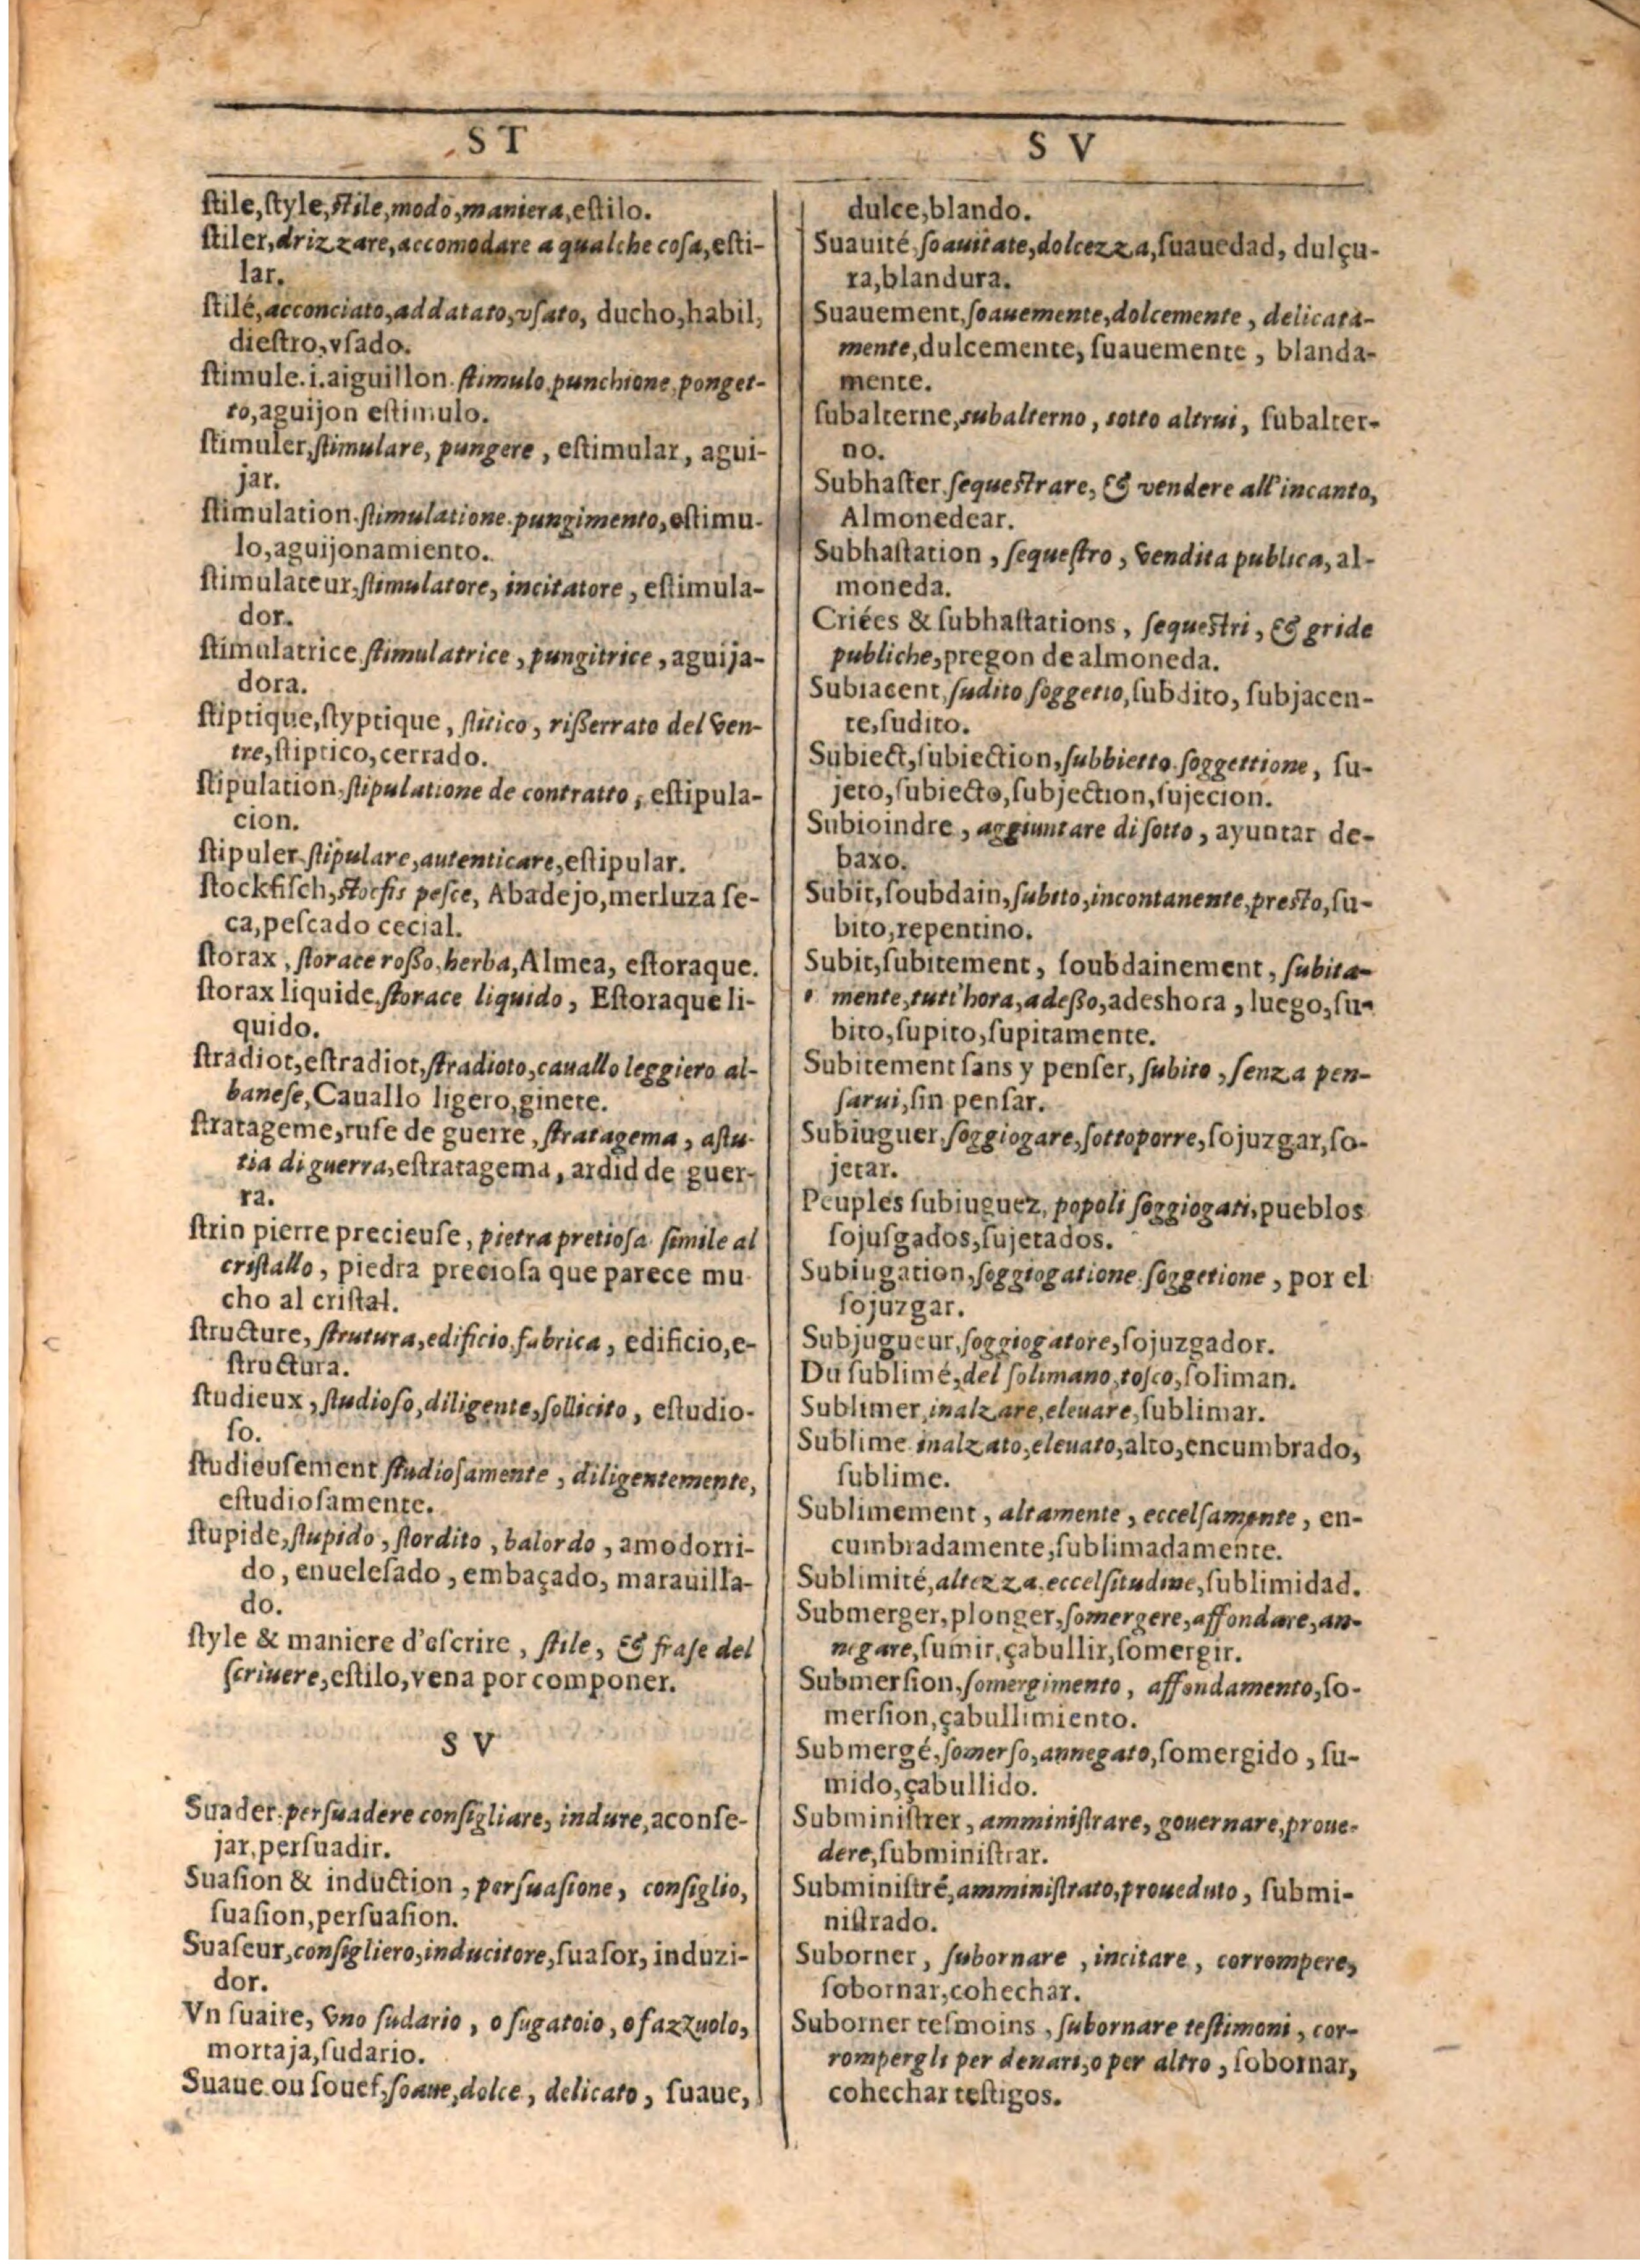 S T
S V
ſtile,ſtyle,ſtile,modo,maniera,eſtilo.
ſtiler,drizzare,accomodare a qualche coſa,eſti-
lar.
ſtilé,acconciato,addatato,vſato, ducho,habil,
dieſtro,vſado.
ſtimule.i.aiguillon.ſtimulo,punchione,ponget-
to,aguijon eſtimulo.
ſtimuler,ſtimulare, pungere, eſtimular, agui-
jar.
ſtimulation.ſtimulatione.pungimento,eſtimu-
lo,aguijonamiento.
ſtimulateur,ſtimulatore, incitatore, eſtimula-
dor.
ſtimulatrice.ſtimulatrice, pungitrice, aguija-
dora.
ſtiptique,ſtyptique, ſtitico, rißerrato del ven-
tre,ſtiptico,cerrado.
ſtipulation,ſtipulatione de contratto, eſtipula-
cion.
ſtipuler.ſtipulare,autenticare,eſtipular.
ſtockfiſch,ſtocfis peſce, Abadejo,merluza ſe-
ca,peſcado cecial.
ſtorax, ſtorace roßo,herba,Almea, eſtoraque.
ſtorax liquide,ſtorace liquido, Eſtoraque li-
quido.
ſtradiot,eſtradiot,ſtradioto,cauallo leggiero al-
baneſe,Cauallo ligero,ginete.
ſtratageme,ruſe de guerre, ſtratagema, aſtu-
tia di guerra,eſtratagema, ardid de guer-
ra.
ſtrin pierre precieuſe, pietra pretioſa ſimile al
criſtallo, piedra precioſa que parece mu
cho al criſtal.
ſtructure, ſtrutura,edificio,fabrica, edificio,e-
ſtructura.
ſtudieux, ſtudioſo,diligente,ſollicito, eſtudio-
ſo.
ſtudieuſement ſtudioſamente, diligentemente,
eſtudioſamente.
ſtupide,ſtupido, ſtordito, balordo, amodorri-
do, enueleſado, embaçado, marauilla-
do.
ſtyle & maniere d'eſcrire, ſtile, & fraſe del
ſcriuere,eſtilo,vena por componer.
S V
Suader.perſuadere conſigliare, indure,aconſe-
jar,perſuadir.
Suaſion & induction, perſuaſione, conſiglio,
ſuaſion,perſuaſion.
Suaſeur,conſigliero,inducitore,ſuaſor, induzi-
dor.
Vn ſuaire, vno ſudario, o ſugatoio, o fazzuolo,
mortaja,ſudario.
Suaue ou ſouef,ſoaue,dolce, delicato, ſuaue,
dulce,blando.
Suauité,ſoauitate,dolcezza,ſuauedad, dulçu-
ra,blandura.
Suauement,ſoauemente,dolcemente, delicata-
mente,dulcemente, ſuauemente, blanda-
mente.
ſubalterne,subalterno, sotto altrui, ſubalter-
no.
Subhaſter ſequeſtrare, & vendere all'incanto,
Almonedear.
Subhaſtation, ſequeſtro, vendita publica, al-
moneda.
Criées & ſubhaſtations, ſequeſtri, & gride
publiche,pregon de almoneda.
Subiacent,ſudito,ſoggetto,ſubdito, ſubjacen-
te,ſudito.
Subiect,ſubiection,ſubbietto.ſoggettione, ſu-
jeto,ſubiecto,ſubjection,ſujecion.
Subioindre, aggiuntare di ſotto, ayuntar de-
baxo.
Subit,ſoubdain,ſubito,incontanente,preſto,ſu-
bito,repentino.
Subit,ſubitement, ſoubdainement, ſubita-
mente,tutt'hora,adeßo,adeshora, luego,ſu-
bito,ſupito,ſupitamente.
Subitement ſans y penſer, ſubito, ſenza pen-
ſarui,ſin penſar.
Subiuguer,ſoggiogare,ſottoporre,ſojuzgar,ſo-
jetar.
Peuples ſubiuguez, popoli ſoggiogati,pueblos
ſojuſgados,ſujetados.
Subiugation,ſoggiogatione ſoggetione, por el
ſojuzgar.
Subjugueur,ſoggiogatore,ſojuzgador.
Du ſublimé,del ſolimano,toſco,ſoliman.
Sublimer,inalzare,eleuare,ſublimar.
Sublime inalzato,eleuato,alto,encumbrado,
ſublime.
Sublimement, altamente, eccelſamente, en-
cumbradamente,ſublimadamente.
Sublimité,altezza.eccelſitudine,ſublimidad.
Submerger,plonger,ſomergere,affondare,an-
negare,ſumir,çabullir,ſomergir.
Submerſion,ſomergimento, affondamento,ſo-
merſion,çabullimiento.
Submergé,ſomerſo,annegato,ſomergido, ſu-
mido,çabullido.
Subminiſtrer, amminiſtrare, gouernare,proue-
dere,ſubminiſtrar.
Subminiſtré,amminiſtrato,proueduto, ſubmi-
niſtrado.
Suborner, ſubornare, incitare, corrompere,
ſobornar,cohechar.
Suborner teſmoins, ſubornare teſtimoni, cor-
rompergli per denari,o per altro, ſobornar,
cohechar teſtigos.